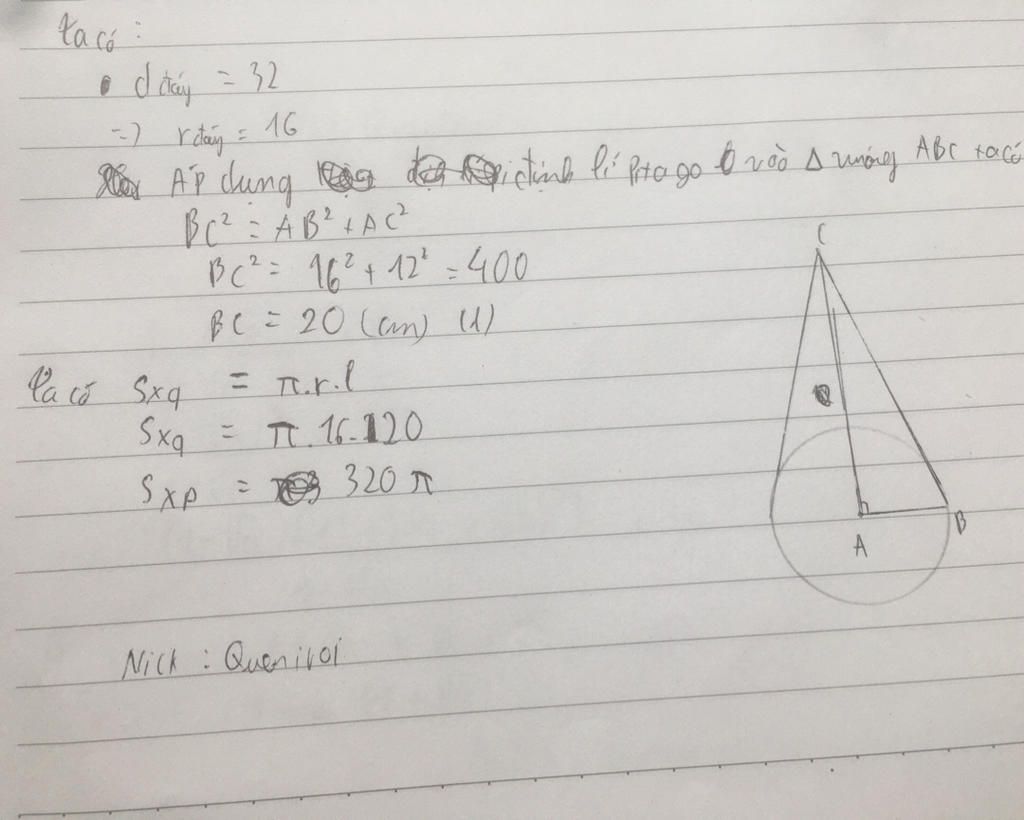 ta có :
• d đáy = 32
=> r đáy = 16
Áp dụng định lí Pitago vào Δ vuông ABC ta có
BC² = AB² + AC²
BC² = 16² + 12² = 400
BC = 20 (cm) (1)
Ta có Sxq = π.r.l
Sxq = π.16.20
Sxp = 320 π
C
A
B
Nick : Quenivoi